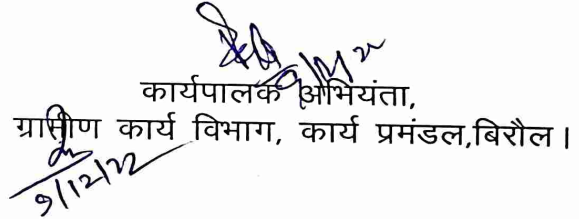 कार्यपालक अभियंता,
ग्रामीण कार्य विभाग, कार्य प्रमंडल,बिरौल।
9/12/22